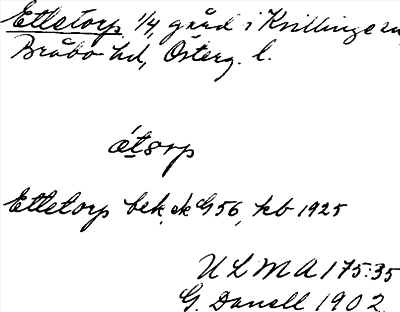 Etletorp 1/4, gård i Kvillinge sn,
Bråbo hd, Österg. l.
ǻtsorp
Etletorp bek. ek G56, kb 1925
ULMA 175:35
G. Danell 1902